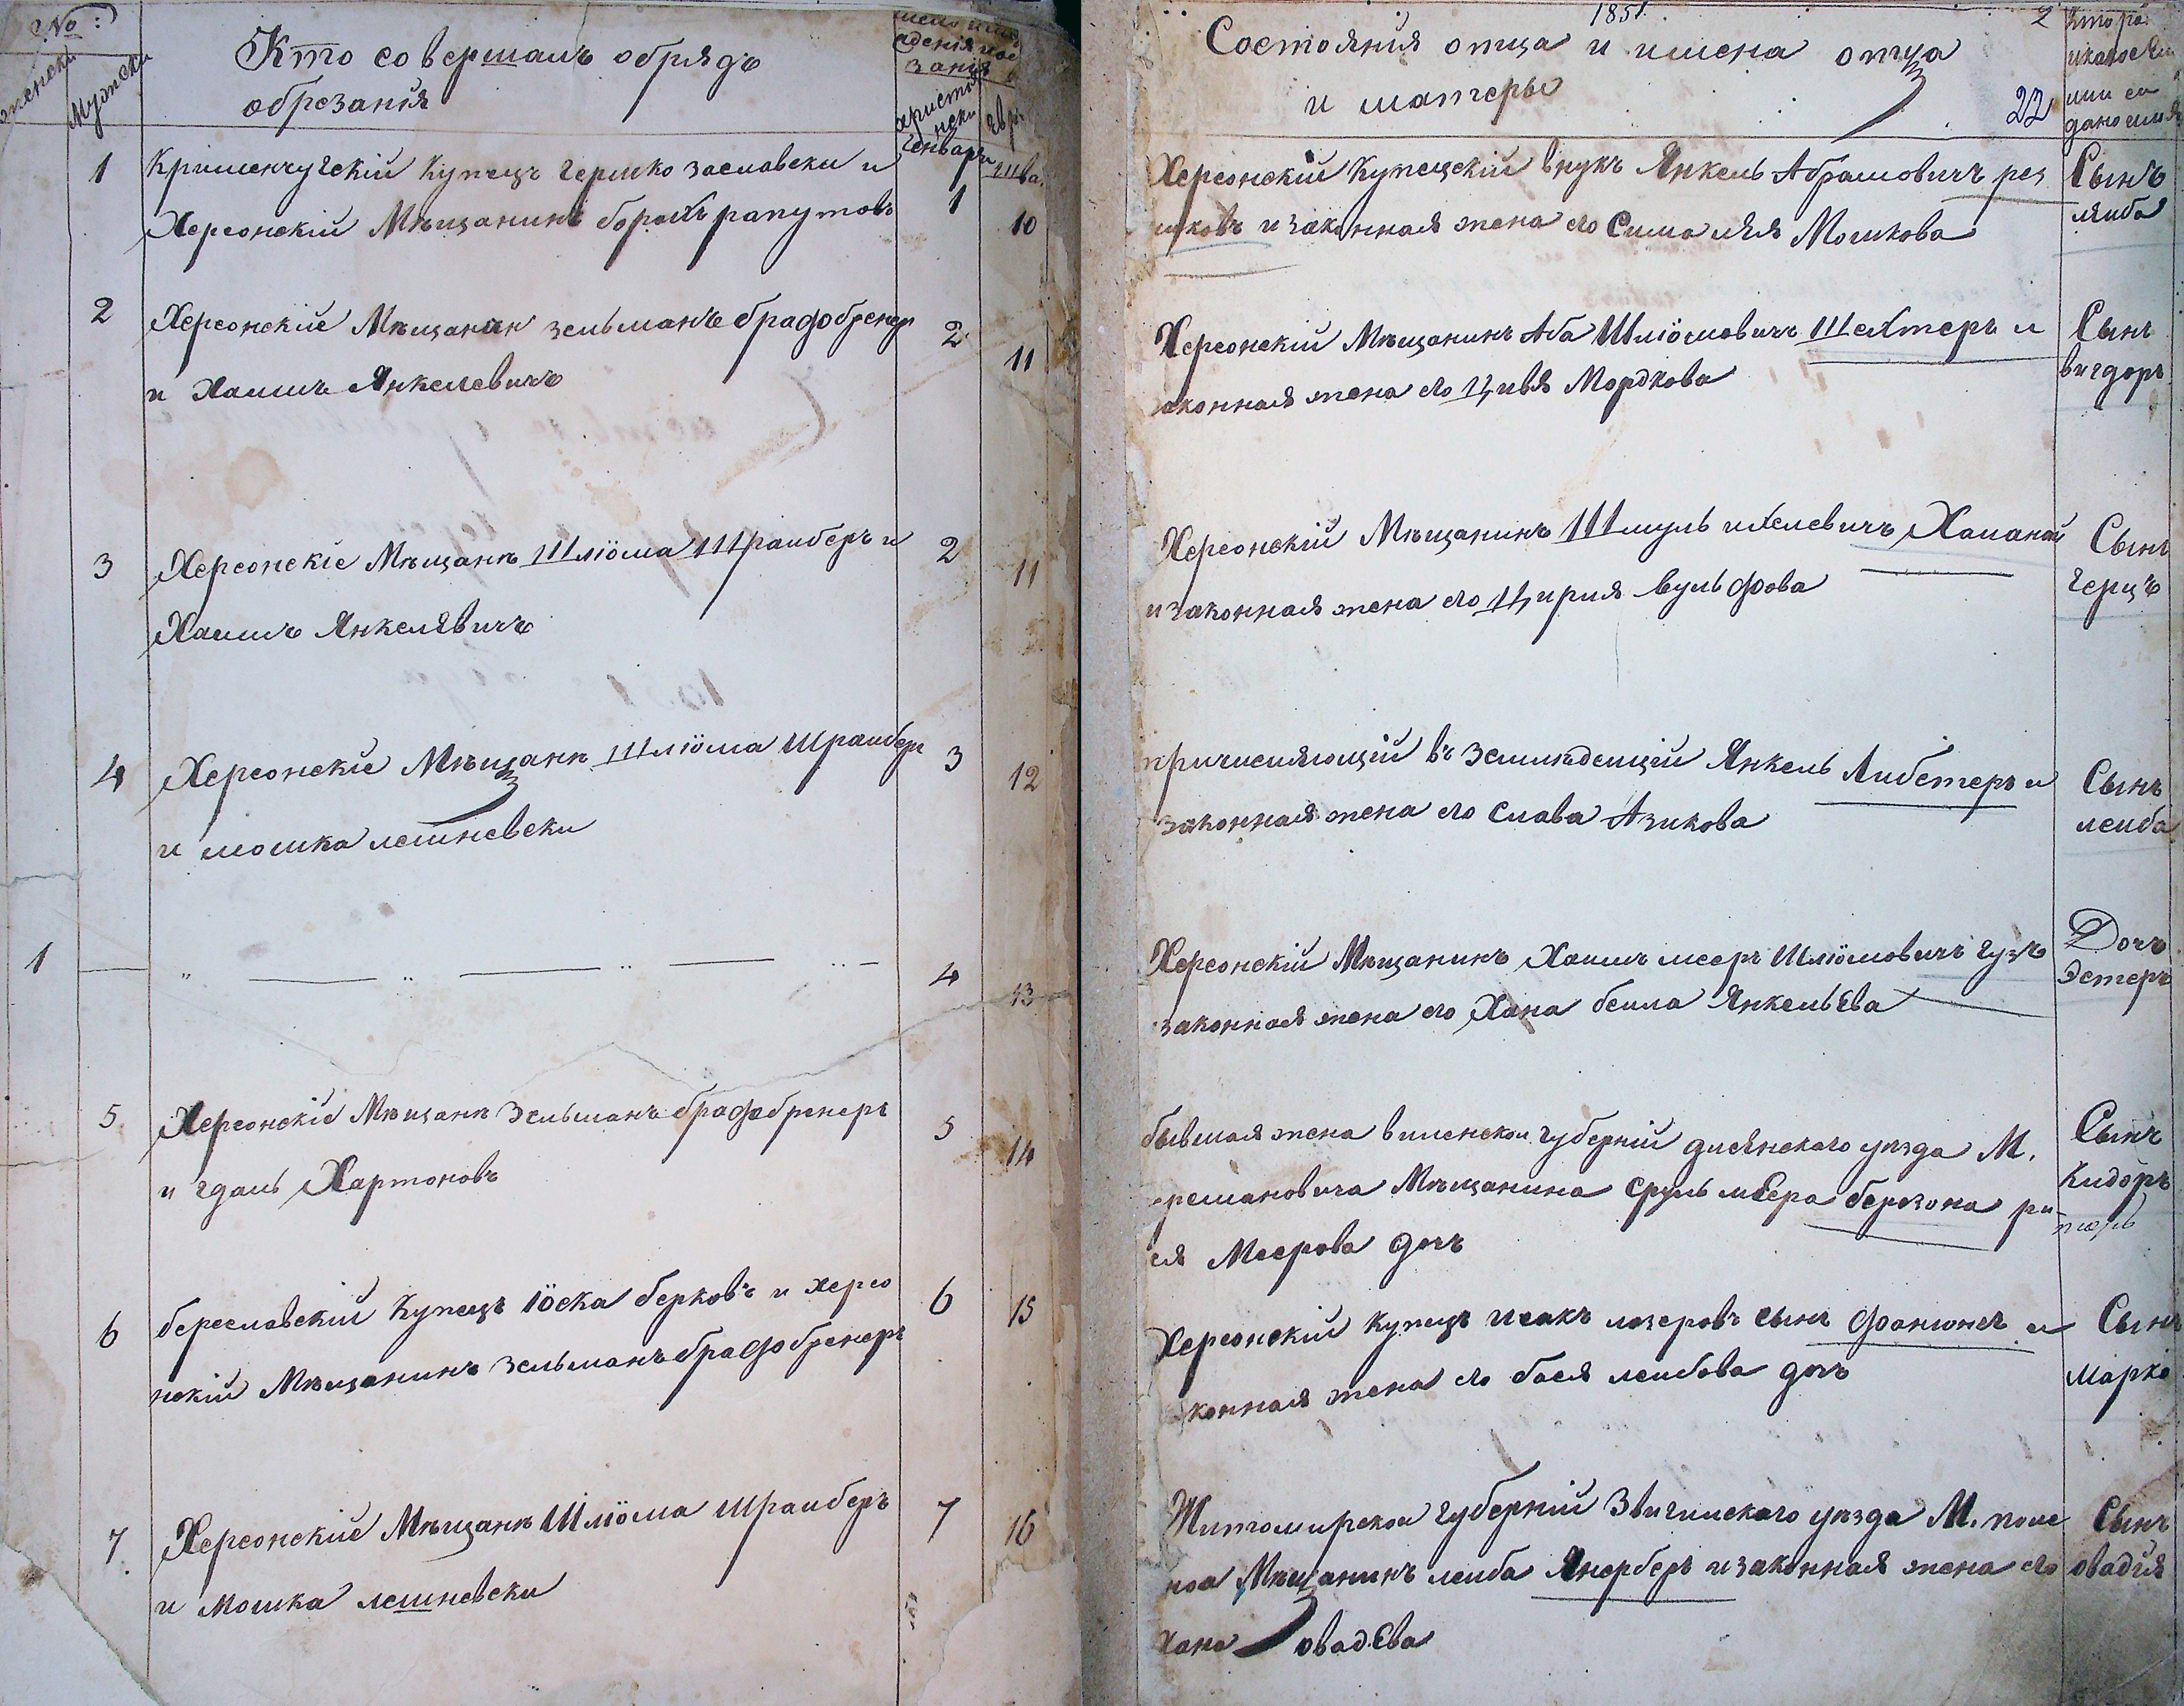 №:
женски
Мужски
Кто совершалъ обрядъ
обрезанія
христіа
нски
Евр:
Генваръ
Шва.
1
Кришенчугскій Купецъ гершко заславски и
Херсонскій Мѣщанинъ борохъ рапутовъ
1
10
2
Херсонскіе Мѣщанин зельманъ брадобренер
и Хаимъ Янкелевичъ
2
11
3
Херсонскіе Мѣщанѣ Шліома Штраиберъ и
Хаимъ Янкелявичъ
2
11
4
Херсонскіе Мѣщанѣ Шліома Шраибер
и мошка лешневски
3
12
1
4
13
5
Херсонскіе Мѣщанѣ Зельманъ брадобренеръ
и гдаль Хартоновъ
5
14
6
береславскій Купецъ Іоска берковъ и херсо
нскій Мѣщанинъ зельманъ брадобренеръ
6
15
7
Херсонскіе Мѣщанѣ Шліома Шраиберъ
и мошка лешневски
7
16
1851.
2
Состояния отца и имена отца
и матеры
22
кто ро
дано имя
Херсонскій Купецскій внукъ Янкель Абрамовичъ рез
никовъ и законная жена его Сима ляя Мошкова
Сынъ
ляиба
Херсонскій Мѣщанинъ Аба Шліомовичъ Шехтеръ и
законная жена его Цивя Мордкова
Сынъ
вигдоръ
Херсонскій Мѣщанинъ Шмуль ихелевичъ Хапанай
и законная жена его Цирия вульфова
Сынъ
герцъ
причисляющій въ земледелцій Янкель Либстеръ и
законная жена его Слава Азикова
Сынъ
леиба
Херсонскій Мѣщанинъ Хаимъ мееръ Шліомовичъ гузъ
законная жена его Хана беила ЯнкельЕва
Дочъ
Эстеръ
бывшая жена виленскои губерній дисянского уѣзда М.
ермановича Мѣщанина Сруль мЕера березона ри-
ся Меерова дочъ
Сынъ
Кидоръ
Херсонскій купецъ исакъ лазеровъ сынъ фанюнъ и
законная жена его бася леибова дочъ
Сынъ
Марко
Житомирскои губерній Звигилского уѣзда М. поло
ноа Мѣщанинъ леиба Янерберъ и законная жена его
Хана овадЕва
Сынъ
овадия